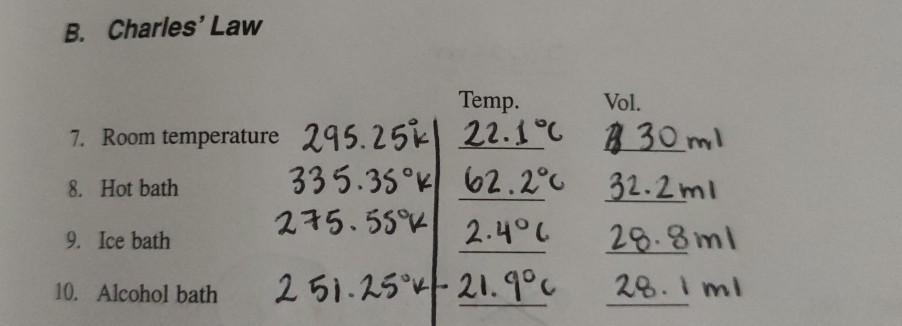 B. Charles' Law
Temp. Vol.
7. Room temperature 295.25°k 22.1°C 30 ml
8. Hot bath 335.35°K 62.2°C 32.2 ml
9. Ice bath 275.55°K 2.4°C 28.8 ml
10. Alcohol bath 251.25°K -21.9°C 28.1 ml